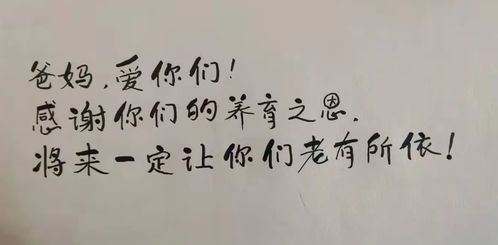 爸妈,爱你们!
感谢你们的养育之恩.
将来一定让你们老有所依!